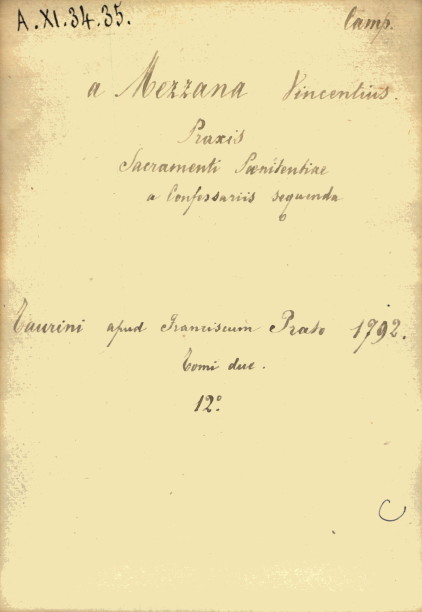 A.XI.34.35.
Camp.
a Mezzana Vincentius.
Praxis
Sacramenti Pœnitentiae
a Confessariis sequenda
Taurini apud Franciscum Prato 1792.
Tomi due.
12°
C